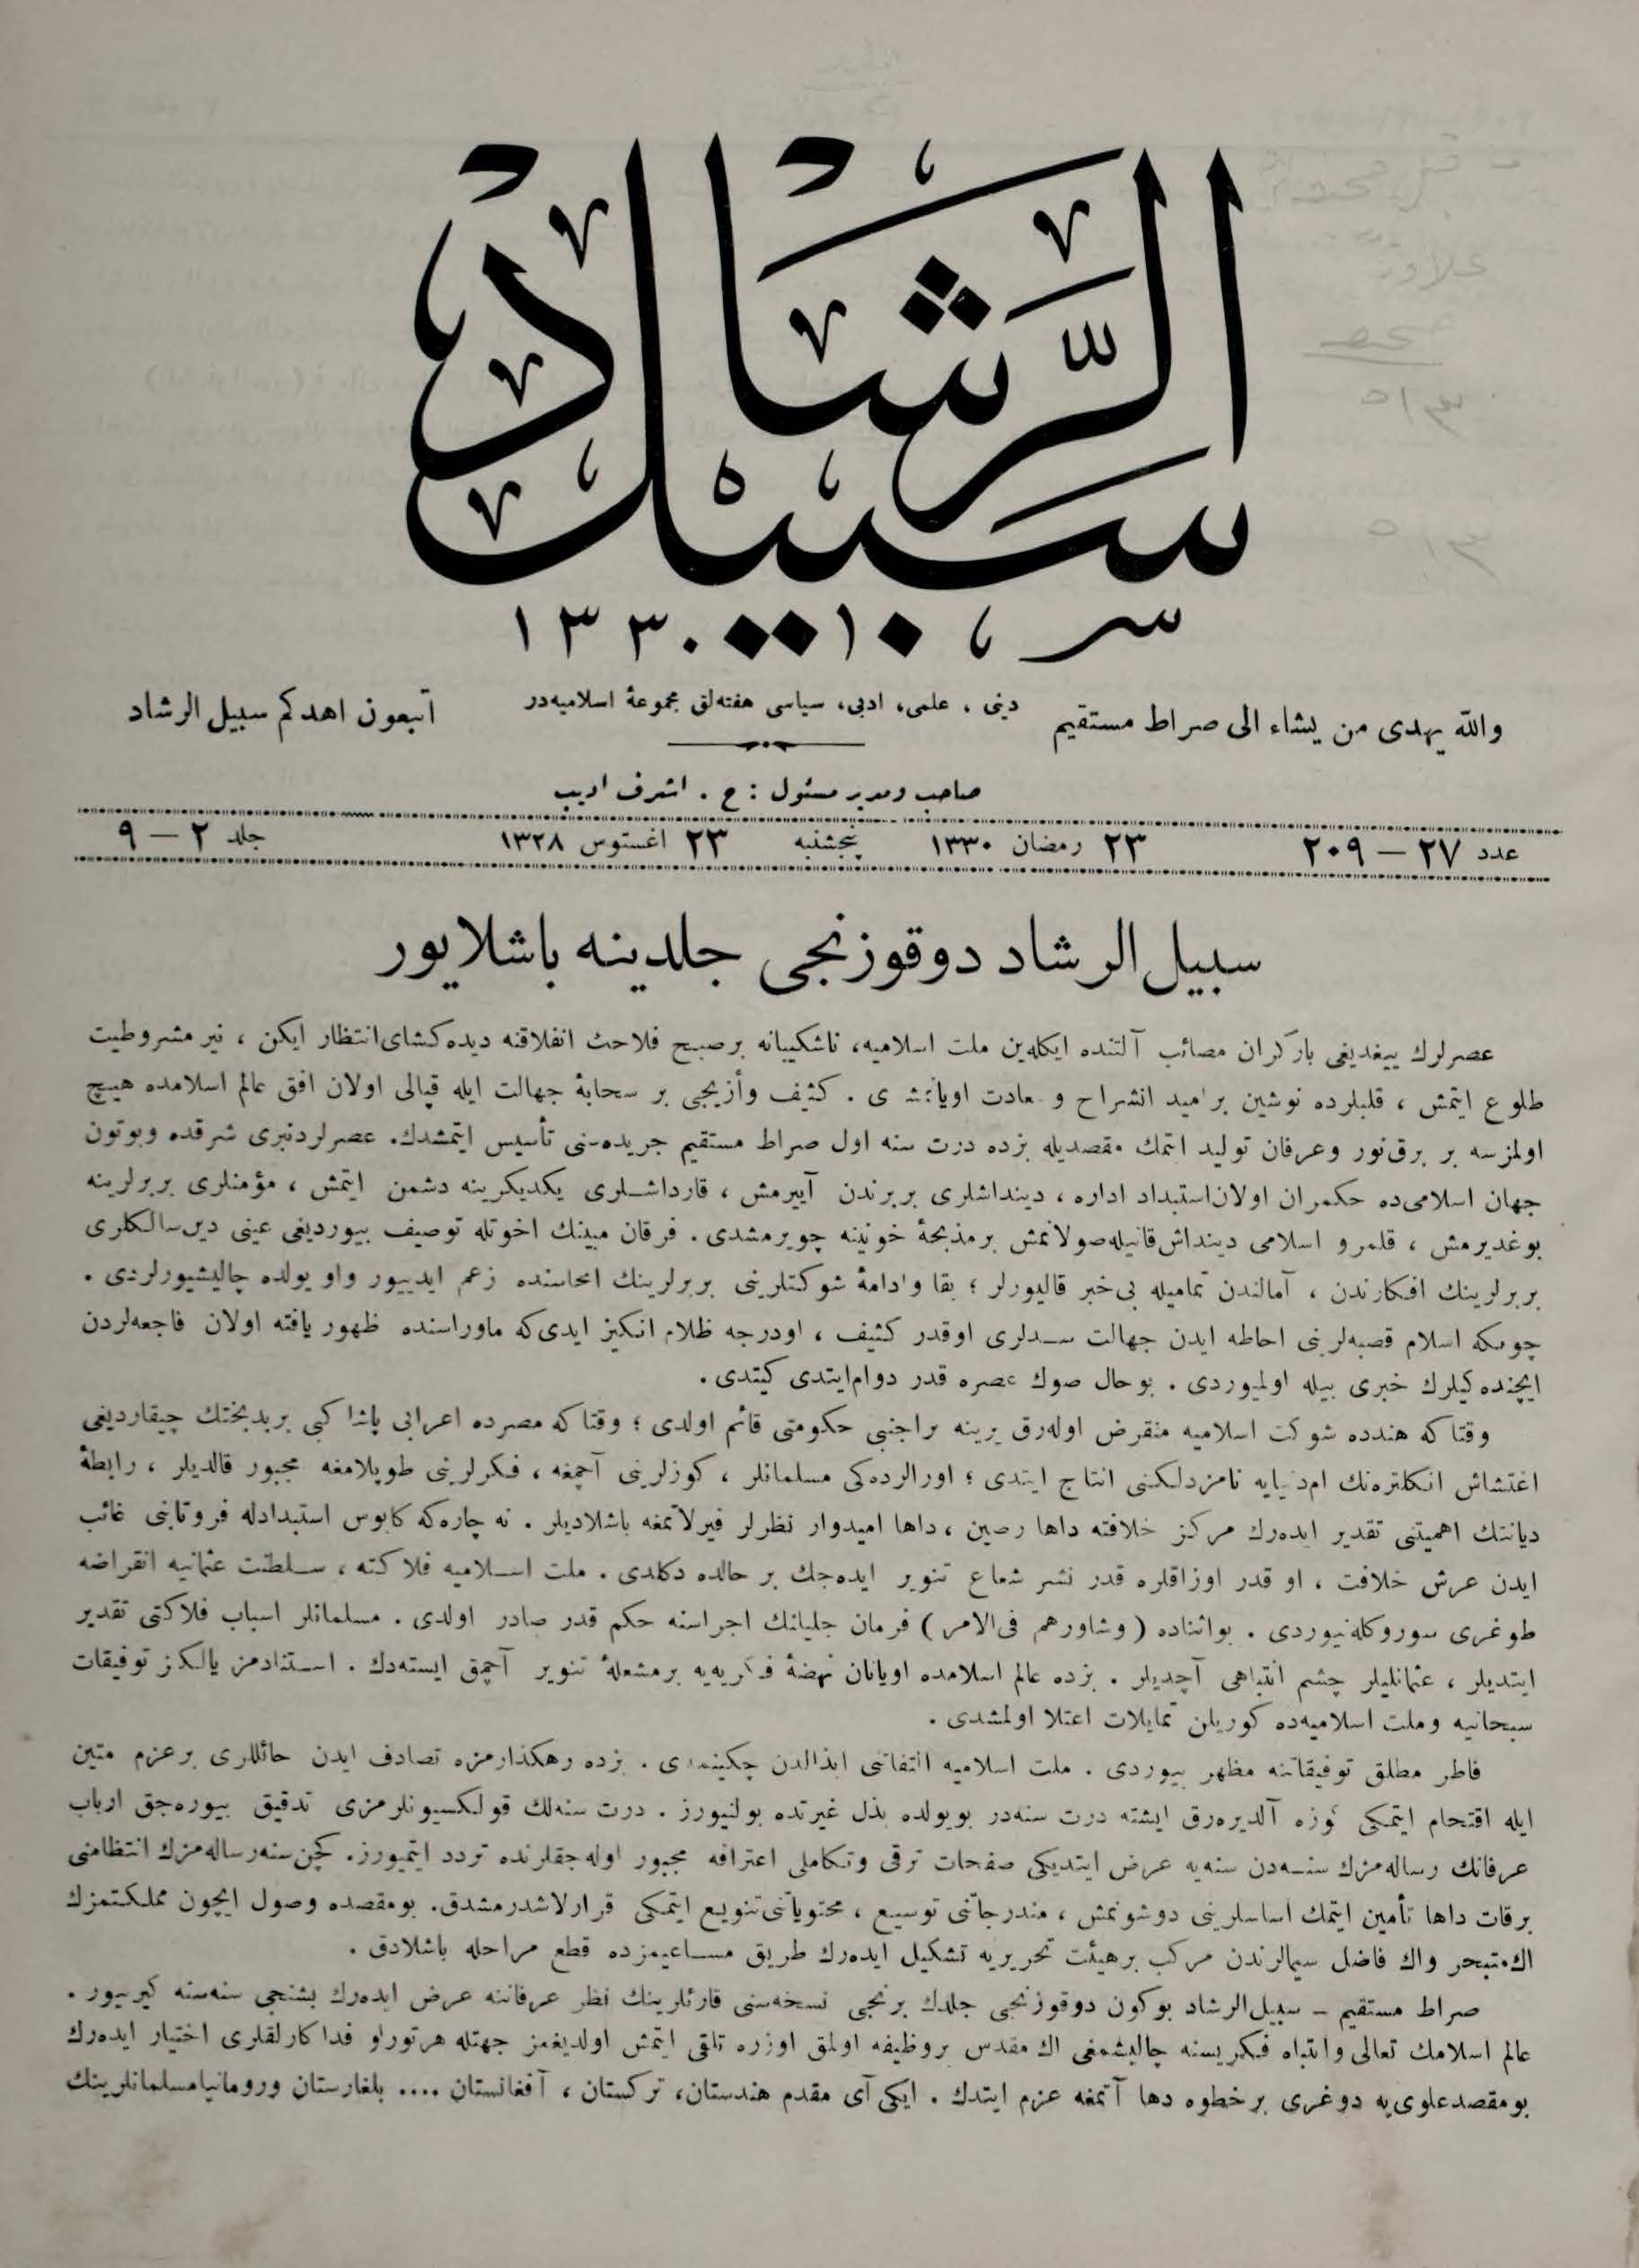 سبيل الرشاد
١٣٣٠
والله يهدى من يشاء الى صراط مستقيم
دينى ، علمى ، ادبى ، سياسى هفته‌لق مجموعۀ اسلاميه‌در
اتبعون اهدكم سبيل الرشاد
صاحب ومدير مسئول : ح . اشرف اديب
عدد ٢٧ — ٢٠٩
٢٣ رمضان ١٣٣٠ پنجشنبه ٢٣ اغستوس ١٣٢٨
جلد ٢ — ٩
سبيل الرشاد دوقوزنجى جلدينه باشلايور
عصرلرك ييغديغى بار كران مصائب آلتنده ايكله‌ين ملت اسلاميه، ناشكيبانه بر صبح فلاحك انفلاقنه ديده‌كشاى انتظار ايكن ، نير مشروطيت
طلوع ايتمش ، قلبلرده نوشين بر اميد انشراح و سعادت . كثيف وأزيجى بر سحابۀ جهالت ايله قپالى اولان افق عالم اسلامده هيچ
اولمزسه بر برق نور وعرفان توليد ايتمك مقصديله بزده درت سنه اول صراط مستقيم جريده‌سنى تأسيس ايتمشدك. عصرلردنبرى شرقده وبوتون
جهان اسلامى‌ده حكمران اولان استبداد اداره ، دينداشلرى بربرندن آييرمش ، قارداشلرى يكديكرينه دشمن ايتمش ، مؤمنلرى بربرلرينه
بوغديرمش ، قلمرو اسلامى دينداش قانيله صولانمش بر مذبحۀ خونينه چويرمشدى . فرقان مبينك اخوتله توصيف بيورديغى عينى دين سالكلرى
بربرلرينك افكارندن ، آمالندن تماميله بى‌خبر قاليورلر ؛ بقا وادامۀ شوكتلرينى بربرلرينك امحاسنده زعم ايدييور واو يولده چاليشيورلردى .
چونكه اسلام قصبه‌لرينى احاطه ايدن جهالت سدلرى اوقدر كثيف ، اودرجه ظلام انكيز ايدى كه ماوراسنده ظهور يافته اولان فاجعه‌لردن
ايچنده‌كيلرك خبرى بيله اولميوردى . بوحال صوك عصره قدر دوام ايتدى كيتدى .
وقتا كه هندده شوكت اسلاميه منقرض اوله‌رق يرينه بر اجنبى حكومتى قائم اولدى ؛ وقتا كه مصرده اعرابى پاشا كبى بر بدبختك چيقارديغى
اغتشاش انكلتره‌نك نامزدلكنى انتاج ايتدى ؛ اورالرده‌كى مسلمانلر ، كوزلرينى آچمغه ، فكرلرينى طوپلامغه مجبور قالديلر ، رابطۀ
ديانتك اهميتنى تقدير ايده‌رك مركز خلافته داها رصين ، داها اميدوار نظرلر فيرلاتمغه باشلاديلر . نه چاره‌كه كابوس استبدادله فروتابنى غائب
ايدن عرش خلافت ، او قدر اوزاقلره قدر نشر شعاع تنوير ايده‌جك بر حالده دكلدى . ملت اسلاميه فلاكته ، سلطنت عثمانيه انقراضه
طوغرى سوروكله‌نيوردى . بواثناده ( وشاورهم فى الامر ) فرمان جليلنك اجراسنه حكم قدر صادر اولدى . مسلمانلر اسباب فلاكتى تقدير
ايتديلر ، عثمانليلر چشم انتباهى آچديلر . بزده عالم اسلامده اويانان نهضۀ فكريه‌يه بر مشعلۀ تنوير آچمق ايسته‌دك . استنادمز يالكز توفيقات
سبحانيه وملت اسلاميه‌ده كوريلن تمايلات اعتلا اولمشدى .
فاطر مطلق توفيقاتنه مظهر بيوردى . ملت اسلاميه التفاتنى ابذالدن چكينمدى . بزده رهكذارمزه تصادف ايدن حائللرى بر عزم متين
ايله اقتحام ايتمكى كوزه آلديره‌رق ايشته درت سنه‌در بويولده بذل غيرتده بولنيورز . درت سنه‌لك قولكسيونلرمزى تدقيق بيوره‌جق ارباب
عرفانك رساله‌مزك سنه‌دن سنه‌يه عرض ايتديكى صفحات ترقى وتكاملى اعترافه مجبور اوله‌جقلرنده تردد ايتميورز. كچن سنه رساله‌مزك انتظامنى
برقات داها تأمين ايتمك اساسلرينى دوشونمش ، مندرجاتنى توسيع ، محتوياتنى تنويع ايتمكى قرارلاشدرمشدق. بومقصده وصول ايچون مملكتمزك
اك متبحر واك فاضل سيمالرندن مركب بر هيئت تحريريه تشكيل ايده‌رك طريق مساعيمزده قطع مراحله باشلادق .
صراط مستقيم – سبيل الرشاد بوكون دوقوزنجى جلدك برنجى نسخه‌سنى قارئلرينك نظر عرفاننه عرض ايده‌رك بشنجى سنه‌سنه كيريور .
عالم اسلامك تعالى وانتباه فكريسنه چاليشمغى اك مقدس بر وظيفه اولمق اوزره تلقى ايتمش اولديغمز جهتله هر تورلو فداكارلقلرى اختيار ايده‌رك
بومقصد علوى‌يه دوغرى بر خطوه دها آتمغه عزم ايتدك . ايكى آى مقدم هندستان، تركستان ، آفغانستان .... بلغارستان ورومانيا مسلمانلرينك